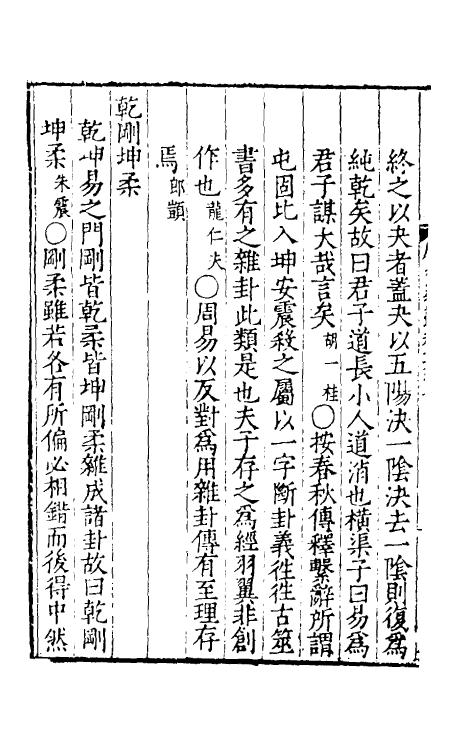 終之以夬者蓋夬以五陽決一陰決去一陰則復爲
純乾矣故曰君子道長小人道消也橫渠子曰易爲
君子謀大哉言矣胡一桂○按春秋傳釋繫辭所謂
屯固比入坤安震殺之屬以一字斷卦義徃徃古筮
書多有之雜卦此類是也夫子存之爲經羽翼非創
作也龍仁夫○周易以反對爲用雜卦傳有至理存
焉郎顗
乾剛坤柔
乾坤易之門剛皆乾柔皆坤剛柔雜成諸卦故曰乾剛
坤柔朱震○剛柔雖若各有所偏必相錯而後得中然